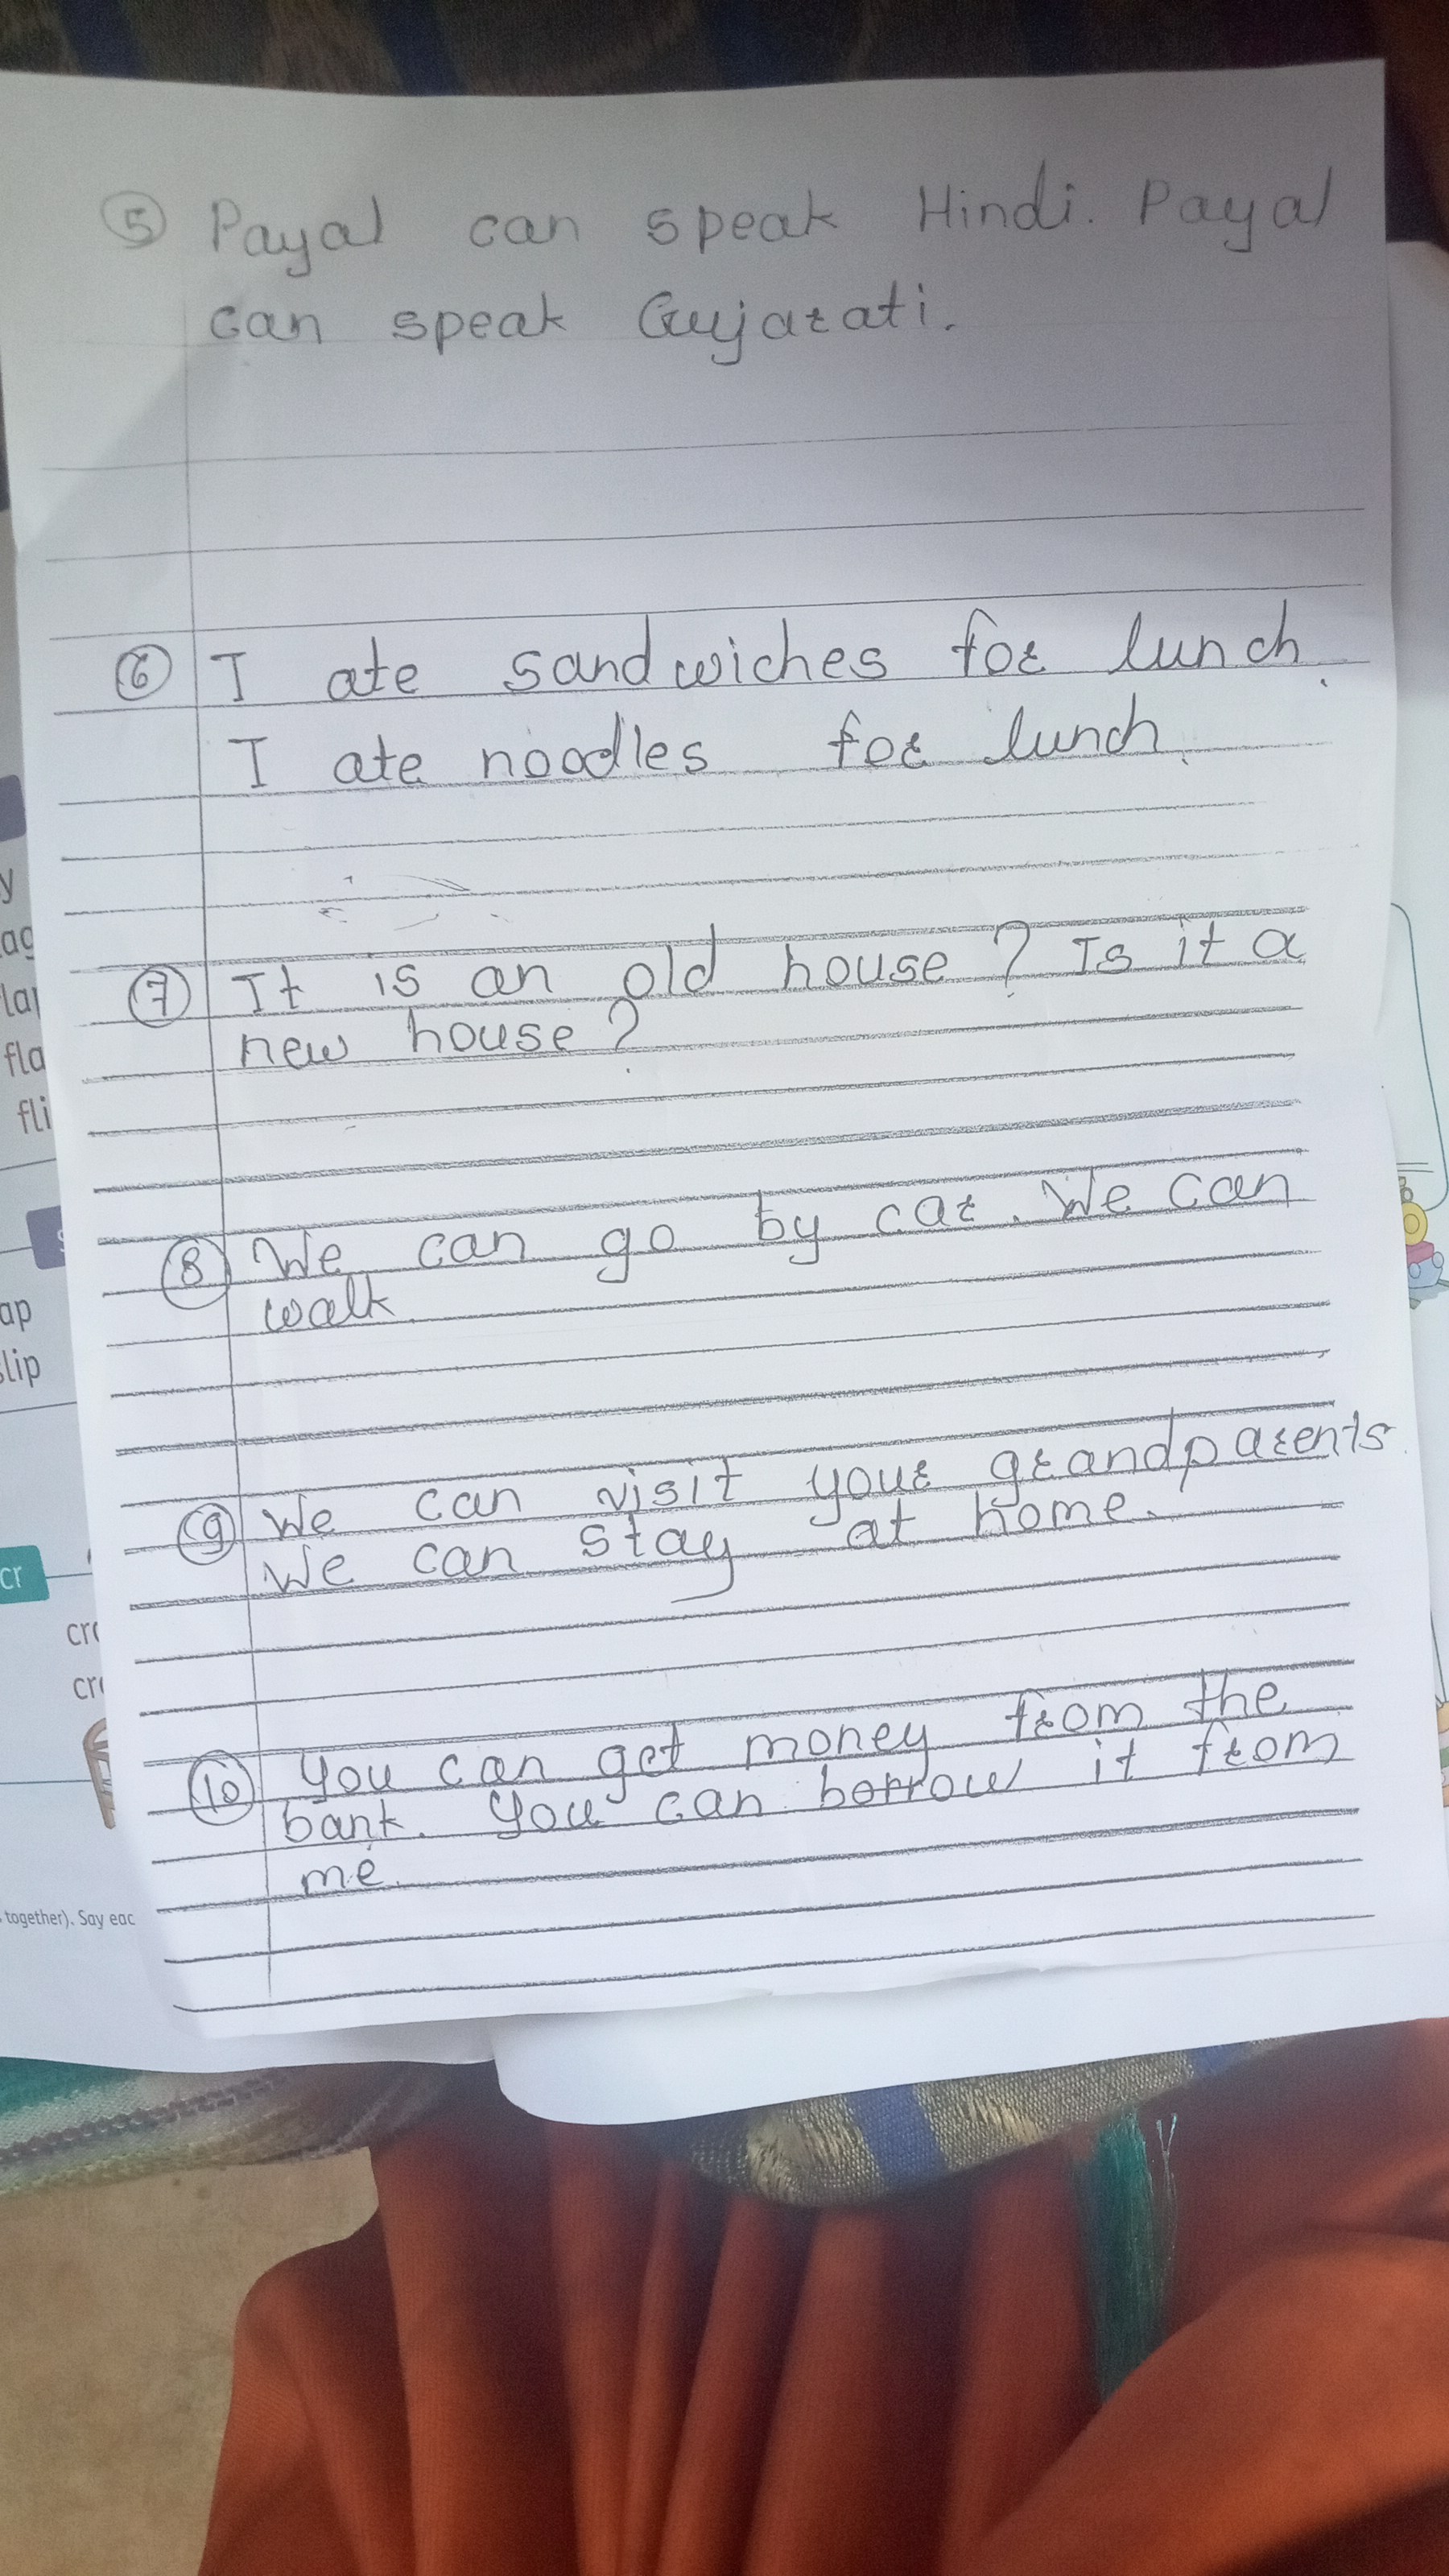 ⑤ Payal can speak Hindi. Payal
can speak Gujarati.
⑥ I ate sandwiches for lunch.
I ate noodles for lunch.
⑦ It is an old house? Is it a
new house?
⑧ We can go by car. We can
walk.
⑨ We can visit your grandparents.
We can stay at home.
⑩ You can get money from the
bank. You can borrow it from
me.
y
fla
fli
ap
slip
cr
together). Say eac